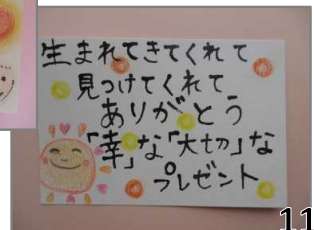 生まれてきてくれて
見つけてくれて
ありがとう
「幸」な「大切」な
プレゼント
11